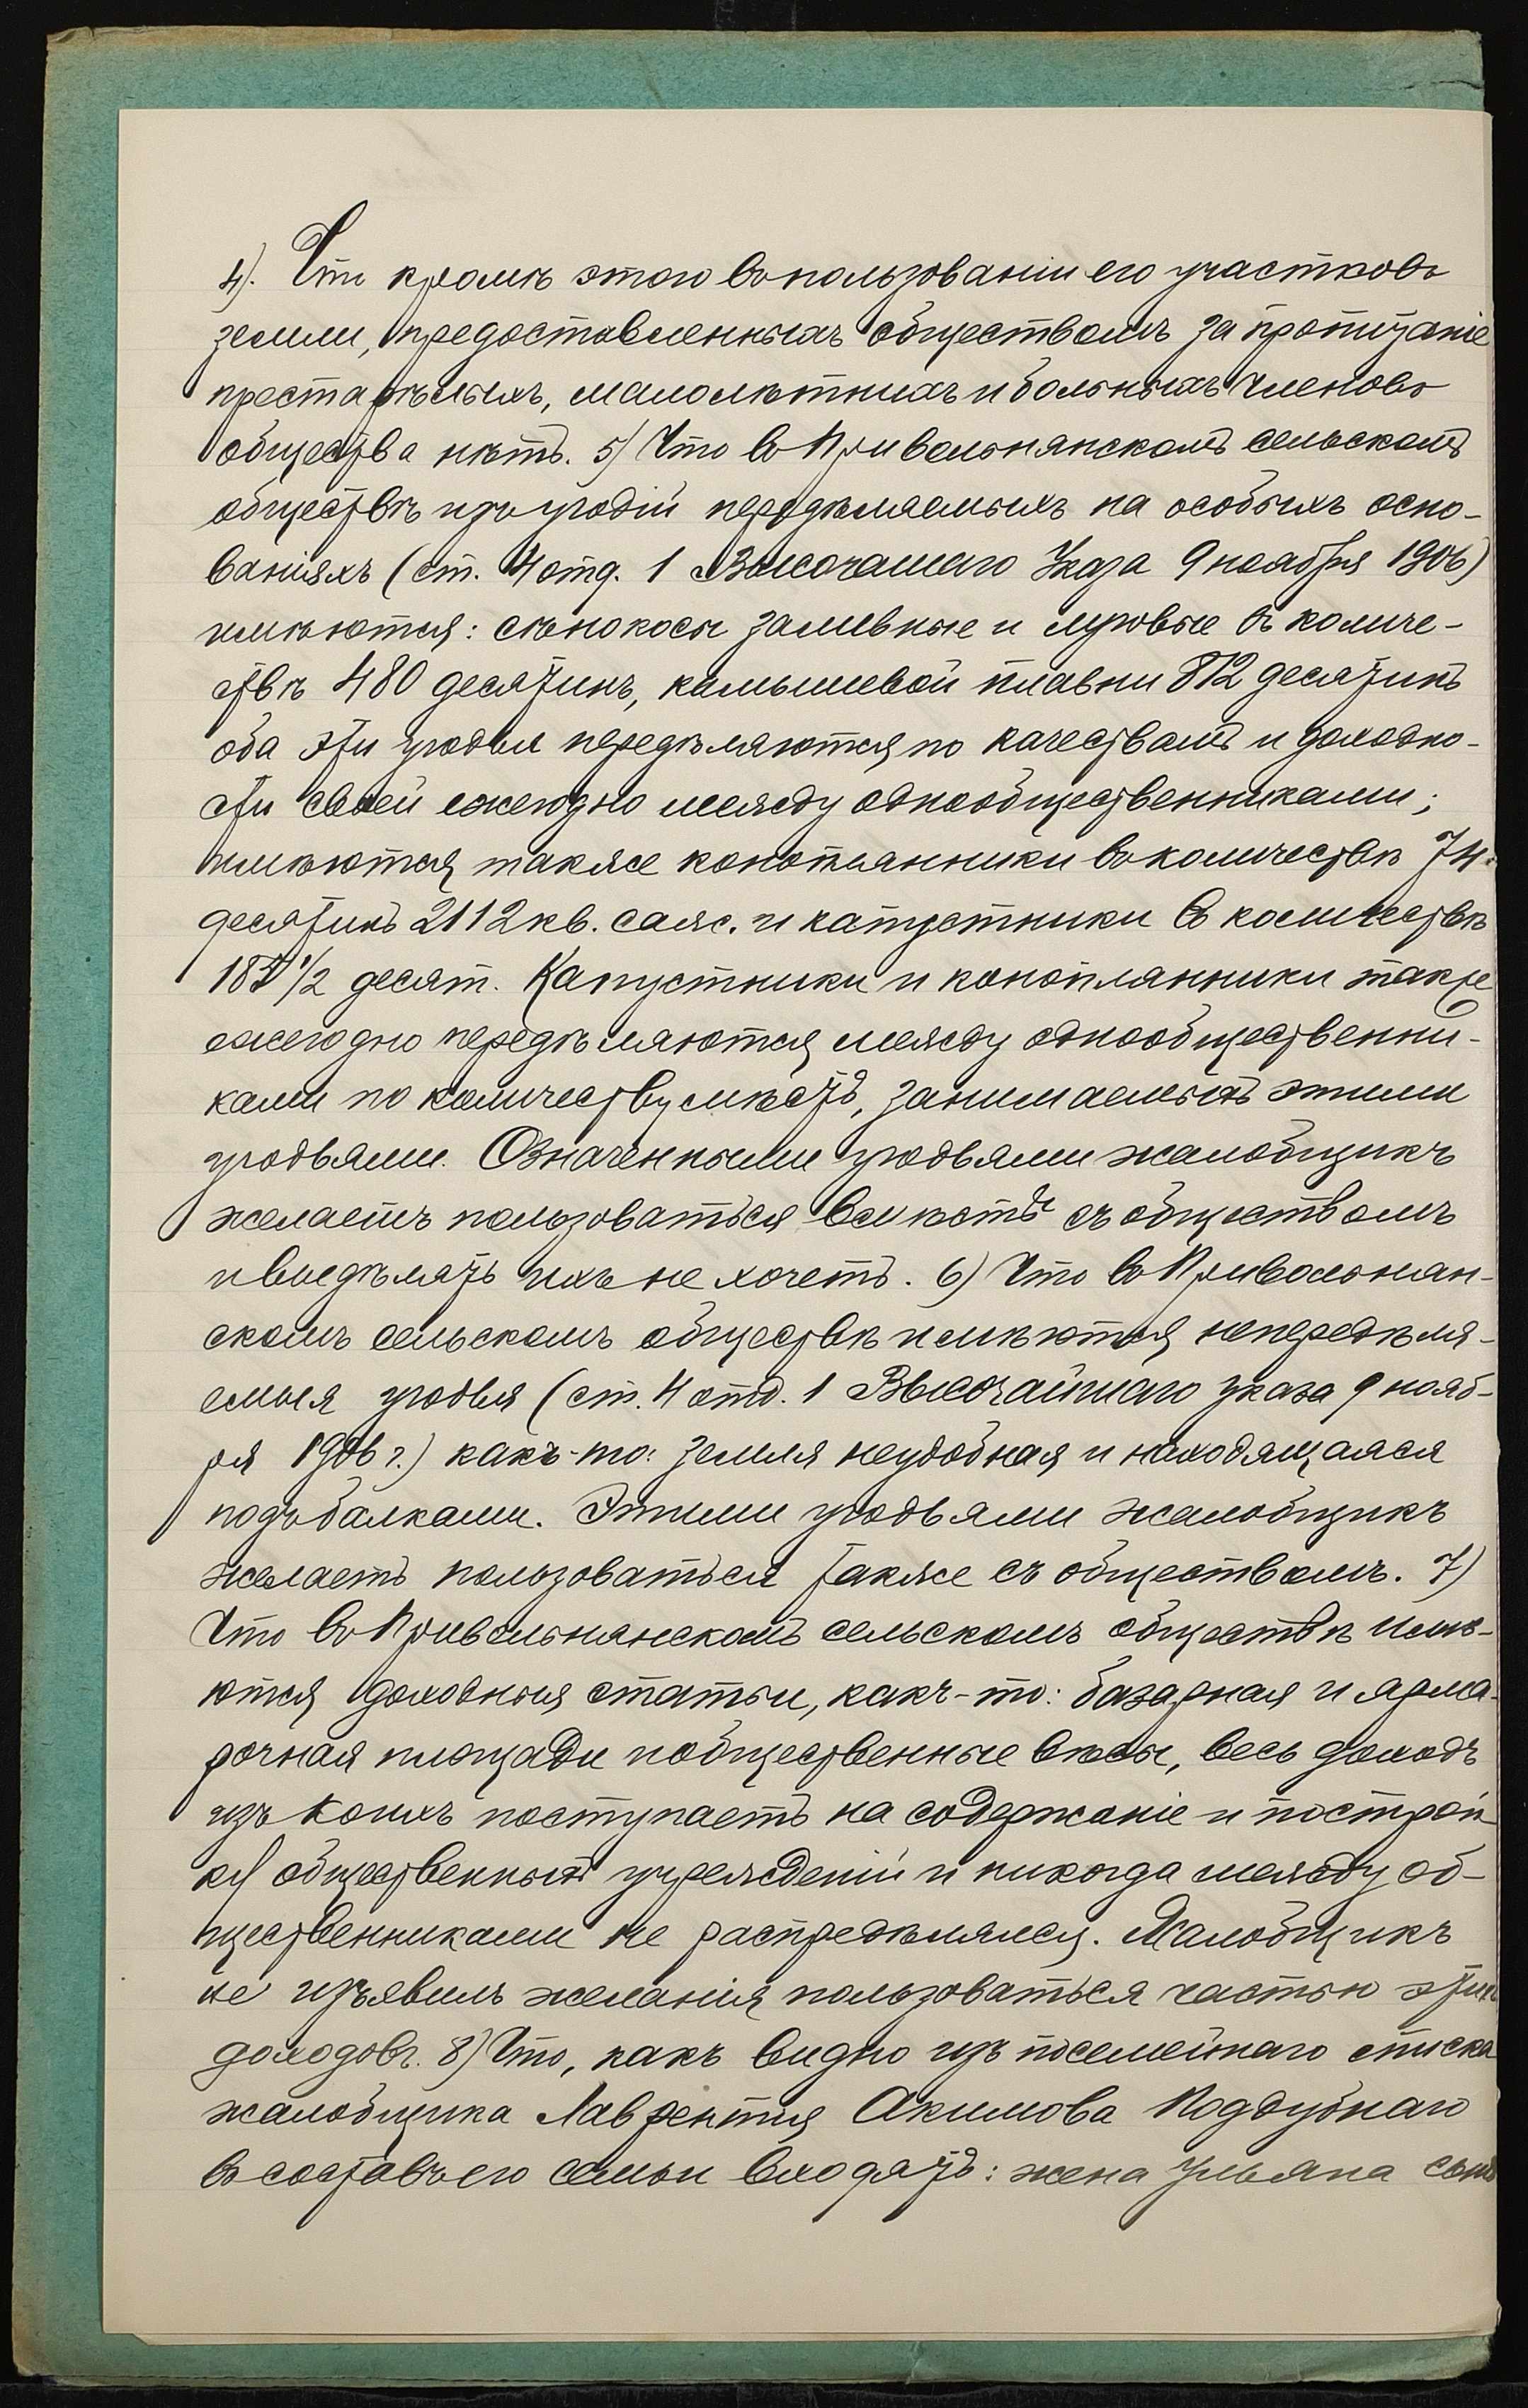 4). Что кромѣ этого въ пользованіи его участковъ
земли, предоставленныхъ обществомъ за пропитаніе
престарѣлыхъ, малолѣтнихъ и больныхъ членовъ
общества нѣтъ. 5) Что въ Привольнянскомъ сельскомъ
обществѣ изъ угодій передѣляемыхъ на особыхъ осно-
ваніяхъ (ст. 4 отд. 1 Высочашаго Указа 9 ноября 1906)
имѣются: сѣнокосы заливные и луговые въ количе-
ствѣ 480 десятинъ, камышевой плавни 872 десятинъ
оба эти угодья передѣляются по качествамъ и доходно-
сти своей ежегодно между однообщественниками;
имѣются также конопляники въ количествѣ 74
десятинъ 2112 кв. саж. и капустники въ количествѣ
1½ десят. Капустники и конопляники также
ежегодно передѣляются между однообщественни-
ками по количеству мѣстъ, занимаемыхъ этими
угодьями. Означенными угодьями жалобщикъ
желаетъ пользоваться вмѣстѣ съ обществомъ
и выдѣлять ихъ не хочетъ. 6) Что въ Привольнян-
скомъ сельскомъ обществѣ имѣются непередѣля-
емыя угодья (ст. 4 отд. 1 Высочайшаго указа 9 нояб-
ря 1906 г.) какъ-то: земля неудобная и находящаяся
подъ балками. Этими угодьями жалобщикъ
желаетъ пользоваться также съ обществомъ. 7)
Что въ Привольнянскомъ сельскомъ обществѣ имѣ-
ются доходныя статьи, какъ-то: базарная и ярма-
рочная площади и общественные вѣсы, весь доходъ
изъ коихъ поступаетъ на содержаніе и построй-
ку общественныхъ учрежденій и никогда между об-
щественниками не распредѣлялся. Жалобщикъ
не изъявилъ желанія пользоваться частью этихъ
доходовъ. 8) Что, какъ видно изъ посемейнаго списка
жалобщика Лаврентія Акимова Поддубнаго
въ составъ его семьи входятъ: жена Ульяна сынъ